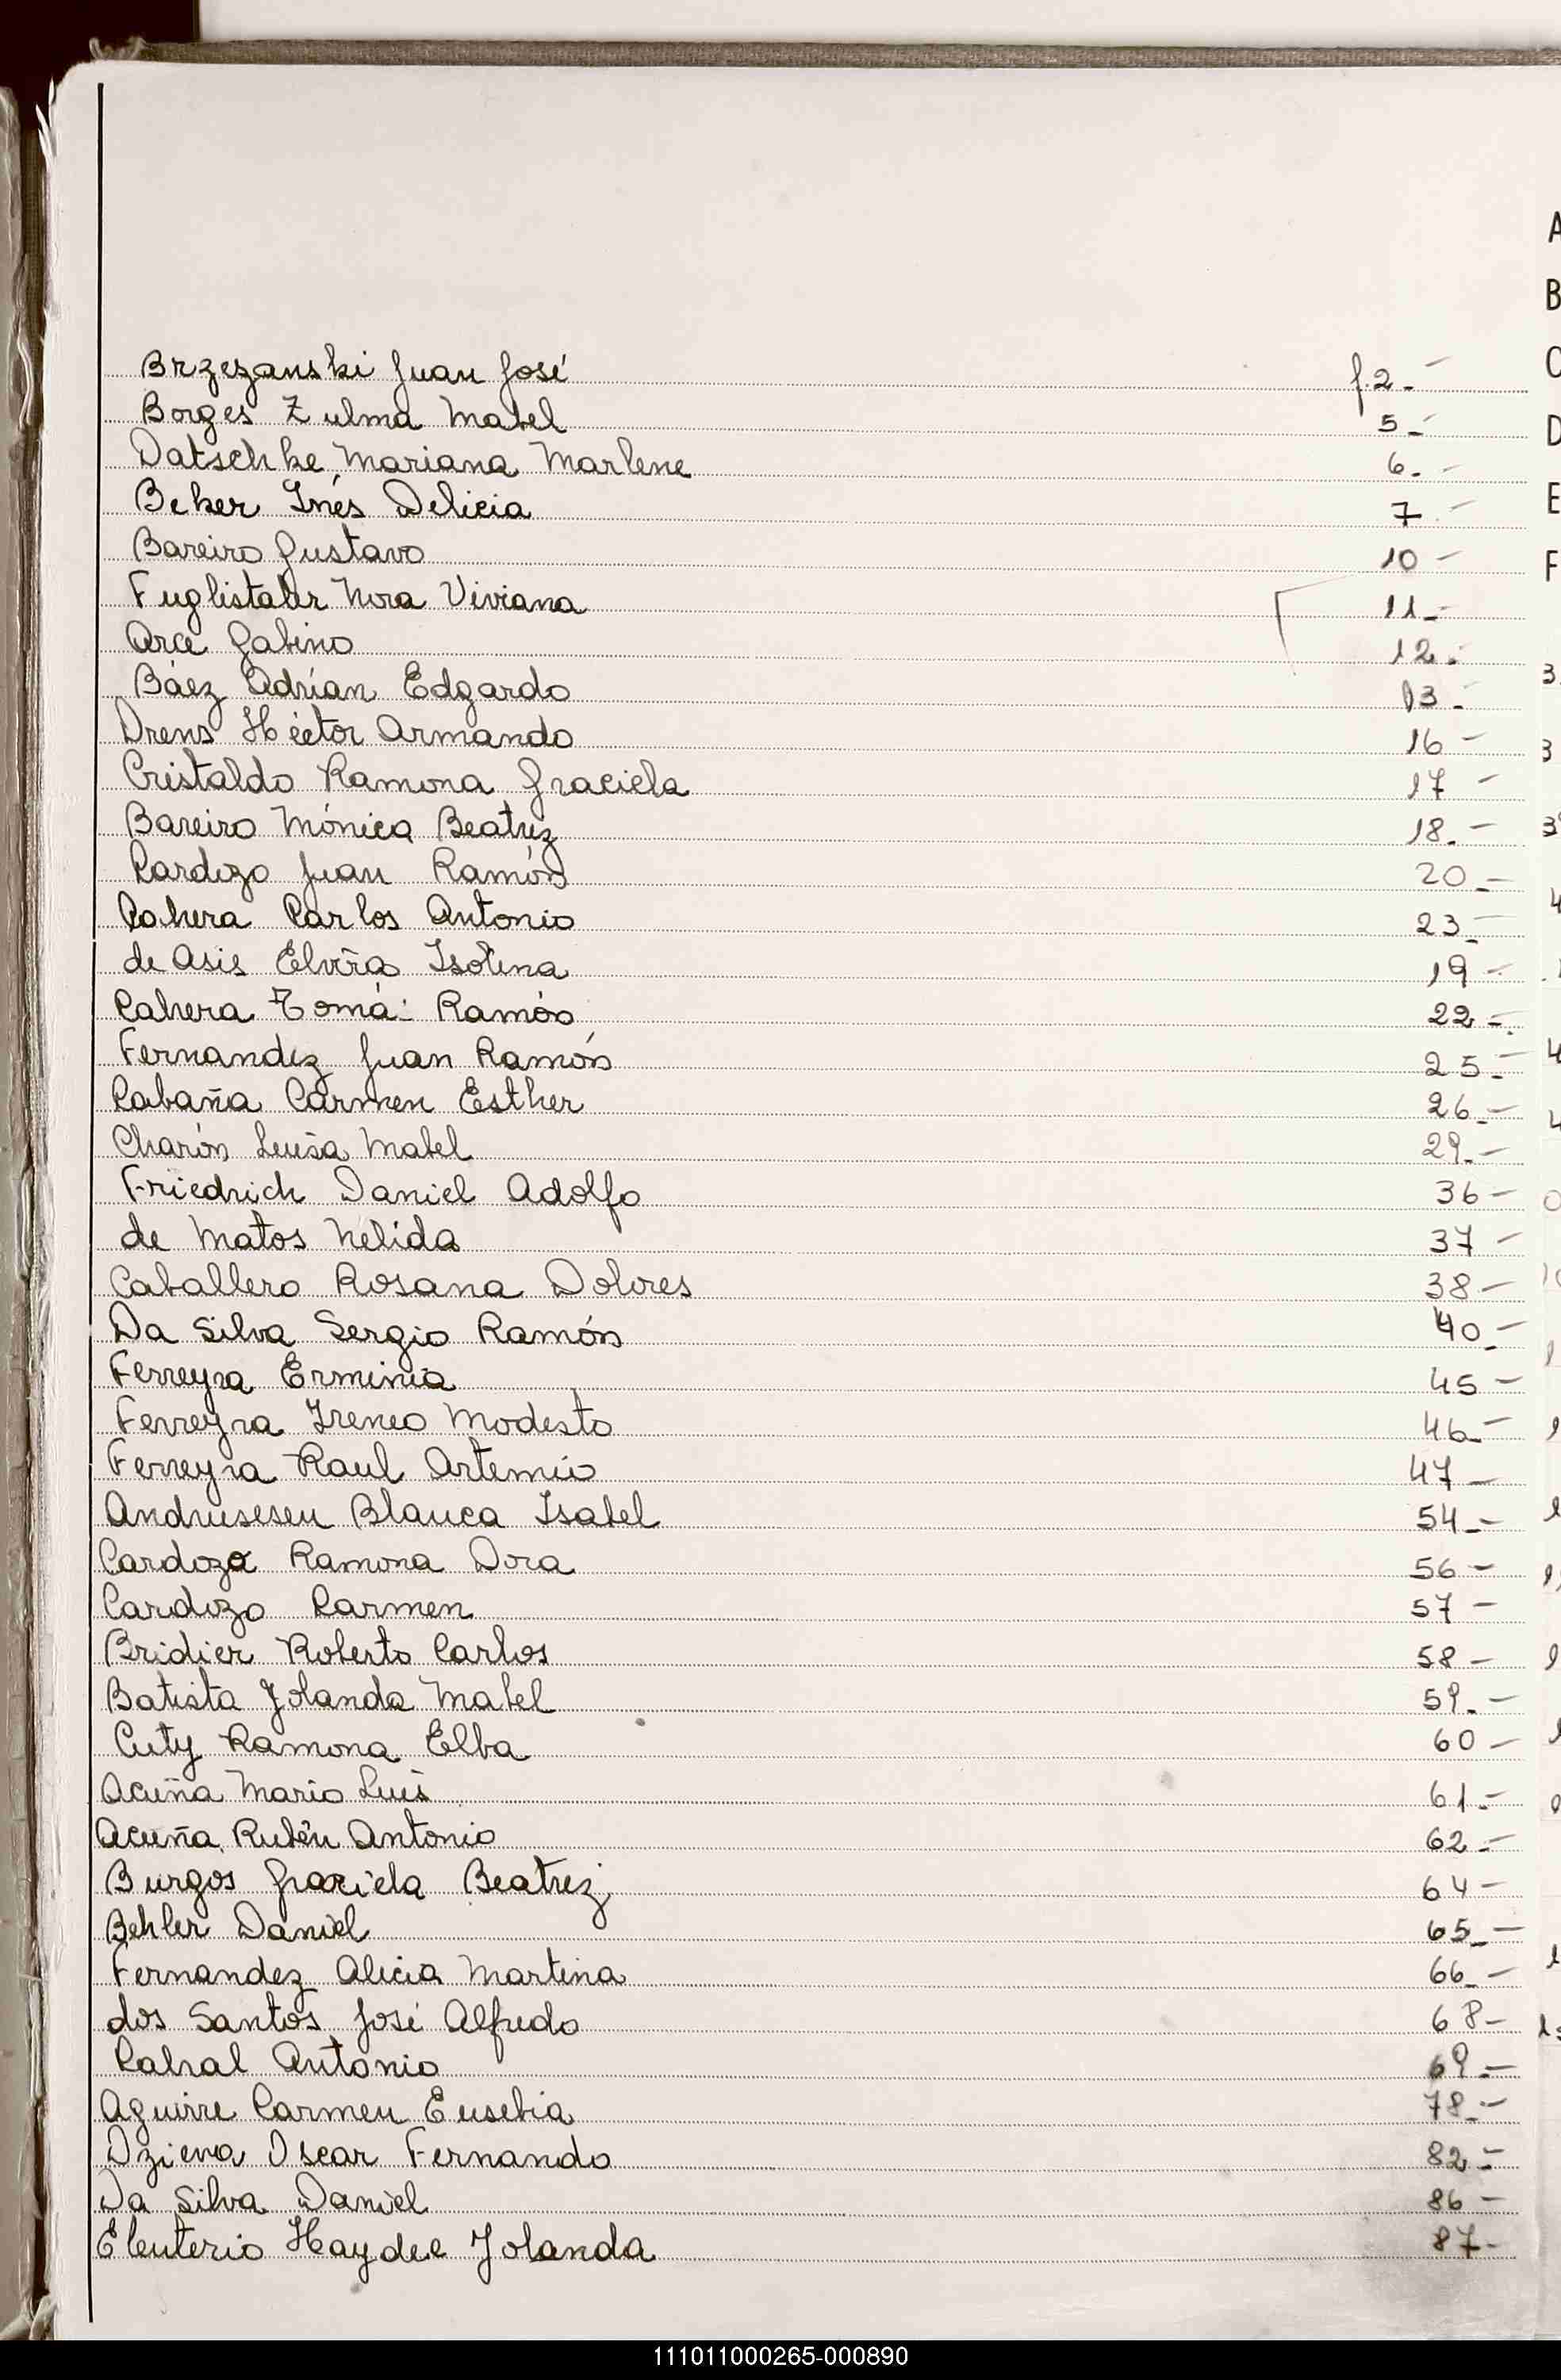 Brzezanski Juan José f. 2.-
Borges Zulma Mabel 5.-
Datschke Mariana Marlene 6.-
Beker Inés Delicia 7.-
Bareiro Gustavo 10 -
Fuglistaler Nora Viviana 11.-
Arce Gabino 12.-
Báez Adrían Edgardo 13.-
Drens Héctor Armando 16 -
Cristaldo Ramona Graciela 17 -
Bareiro Mónica Beatriz 18.-
Cardozo Juan Ramón 20.-
Cabrera Carlos Antonio 23.-
de Asis Elvira Isolina 19 -
Cabrera Tomás Ramón 22 -
Fernandez Juan Ramón 25.-
Cabaña Carmen Esther 26.-
Charón Luisa Mabel 29.-
Friedrich Daniel Adolfo 36 -
de Matos Nélida 37 -
Caballero Rosana Dolores 38 -
Da Silva Sergio Ramón 40.-
Ferreyra Erminia 45 -
Ferreyra Ireneo Modesto 46.-
Ferreyra Raul Artemio 47 -
Andruseseu Blanca Isabel 54.-
Cardozo Ramona Dora 56 -
Cardozo Carmen 57 -
Bridier Roberto Carlos 58 -
Batista Yolanda Mabel 59.-
Cuty Ramona Elba 60 -
Acuña Mario Luis 61.-
Acuña Rubén Antonio 62.-
Burgos Graciela Beatriz 64 -
Behler Daniel 65.-
Fernandez Alicia Martina 66.-
dos Santos José Alfredo 68 -
Cabral Antonio 69.-
Aguirre Carmen Eusebia 78.-
Dzieva Oscar Fernando 82.-
Da Silva Daniel 86 -
Eleuterio Haydee Yolanda 87 -
A
B
C
D
E
F
111011000265-000890